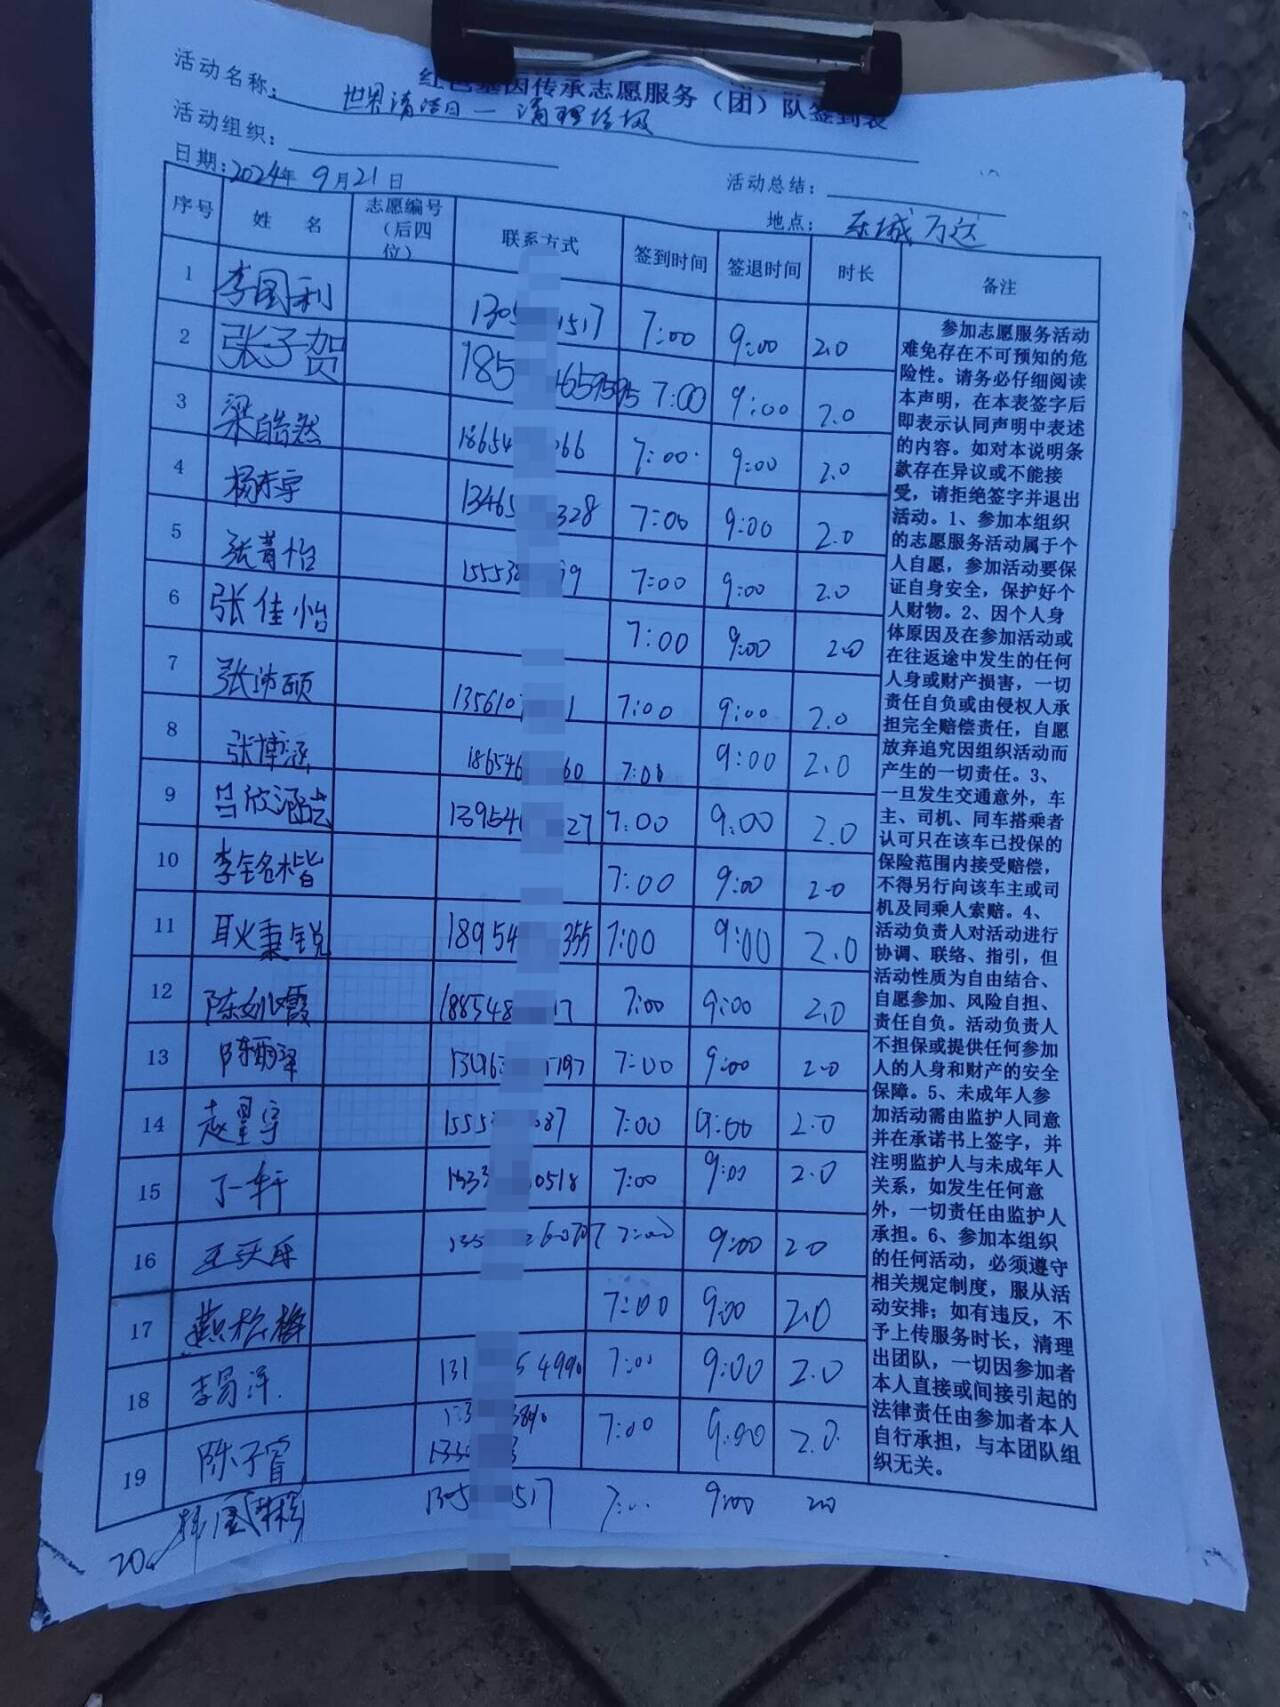 红色基因传承志愿服务（团）队签到表
活动名称：世界清洁日—清理垃圾
活动组织：
日期：2024年9月21日
活动总结：
地点：东城万达
序号 姓名 志愿编号（后四位） 联系方式 签到时间 签退时间 时长 备注
1 李国利 1305 1517 7:00 9:00 2.0
2 张子贺 185 7:00 9:00 2.0
3 梁皓然 18654 066 7:00 9:00 2.0
4 杨梓宇 13465 328 7:00 9:00 2.0
5 张菁怡 1555 99 7:00 9:00 2.0
6 张佳怡 7:00 9:00 2.0
7 张沛硕 135610 1 7:00 9:00 2.0
8 张博涵 186546 60 7:00 9:00 2.0
9 吕欣涵 13954 27 7:00 9:00 2.0
10 李铭楷 7:00 9:00 2.0
11 耿秉锐 18954 355 7:00 9:00 2.0
12 188548 17 7:00 9:00 2.0
13 陈雨泽 7:00 9:00 2.0
14 赵星宇 1555 087 7:00 9:00 2.0
15 丁一轩 0518 7:00 9:00 2.0
16 7:00 9:00 2.0
17 7:00 9:00 2.0
18 李易洋 131 54990 7:00 9:00 2.0
19 陈子睿 7:00 9:00 2.0
20. 1305 517 7:00 9:00 2.0
参加志愿服务活动
难免存在不可预知的危
险性。请务必仔细阅读
本声明，在本表签字后
即表示认同声明中表述
的内容。如对本说明条
款存在异议或不能接
受，请拒绝签字并退出
活动。1、参加本组织
的志愿服务活动属于个
人自愿，参加活动要保
证自身安全，保护好个
人财物。2、因个人身
体原因及在参加活动或
在往返途中发生的任何
人身或财产损害，一切
责任自负或由侵权人承
担完全赔偿责任，自愿
放弃追究因组织活动而
产生的一切责任。3、
一旦发生交通意外，车
主、司机、同车搭乘者
认可只在该车已投保的
保险范围内接受赔偿，
不得另行向该车主或司
机及同乘人索赔。4、
活动负责人对活动进行
协调、联络、指引，但
活动性质为自由结合、
自愿参加、风险自担、
责任自负。活动负责人
不担保或提供任何参加
人的人身和财产的安全
保障。5、未成年人参
加活动需由监护人同意
并在承诺书上签字，并
注明监护人与未成年人
关系，如发生任何意
外，一切责任由监护人
承担。6、参加本组织
的任何活动，必须遵守
相关规定制度，服从活
动安排；如有违反，不
予上传服务时长，清理
出团队，一切因参加者
本人直接或间接引起的
法律责任由参加者本人
自行承担，与本团队组
织无关。